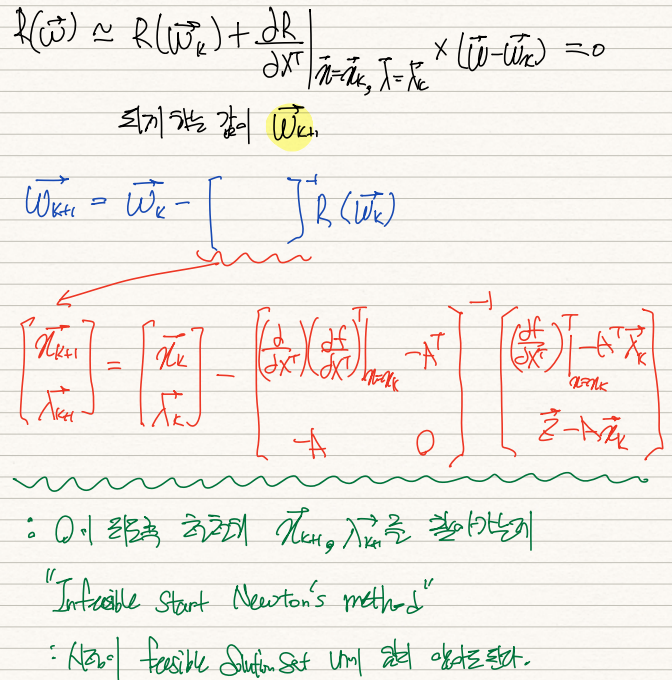 R(w⃗) ≃ R(w⃗_k) + dR/dX^T |_{x⃗=x⃗_k, λ⃗=λ⃗_k} × (w⃗-w⃗_k) = 0
되게 하는 값이 w⃗_{k+1}
w⃗_{k+1} = w⃗_k - [ ]^{-1} R(w⃗_k)
[x⃗_{k+1} ; λ⃗_{k+1}] = [x⃗_k ; λ⃗_k] - [(d/dX^T)(df/dX^T)^T|_{x=x_k} -A^T ; -A 0]^{-1} [(df/dX^T)^T|_{x=x_k} -A^T λ⃗_k ; z⃗-Ax⃗_k]
: 0이 되도록 천천히 x⃗_{k+1}, λ⃗_{k+1}을 찾아가는게
"Infeasible Start Newton's method"
: 시작이 feasible Solution Set 내에 있지 않아도 된다.